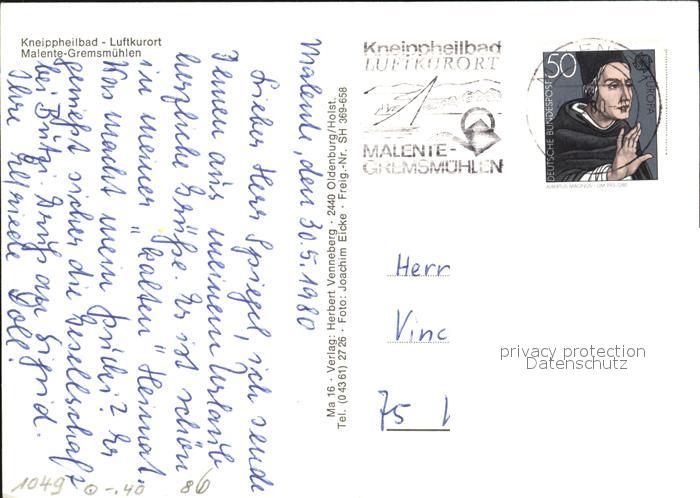 Kneippheilbad - Luftkurort
Malente-Gremsmühlen
Malente, den 30.5.1980
Lieber Herr Spiegel, ich sende
Ihnen aus meinem Urlaub
herzliche Grüße. Es ist schön
in meiner "kalten" Heimat.
Was macht mein Er
genießt sicher die Gesellschaft
bei Gruß an Sigrid.
Ihre Elfriede Doll.
Ma 16 · Verlag: Herbert Venneberg · 2440 Oldenburg/Holst.
Tel. (0 43 61) 27 26 · Foto: Joachim Eicke · Freig.-Nr. SH 369-658
Kneippheilbad
LUFTKURORT
MALENTE-
GREMSMÜHLEN
50
DEUTSCHE BUNDESPOST
EUROPA
ALBERTUS MAGNUS · UM 1193-1280
Herr
Vinc
75
privacy protection
Datenschutz
1049 -.40 86